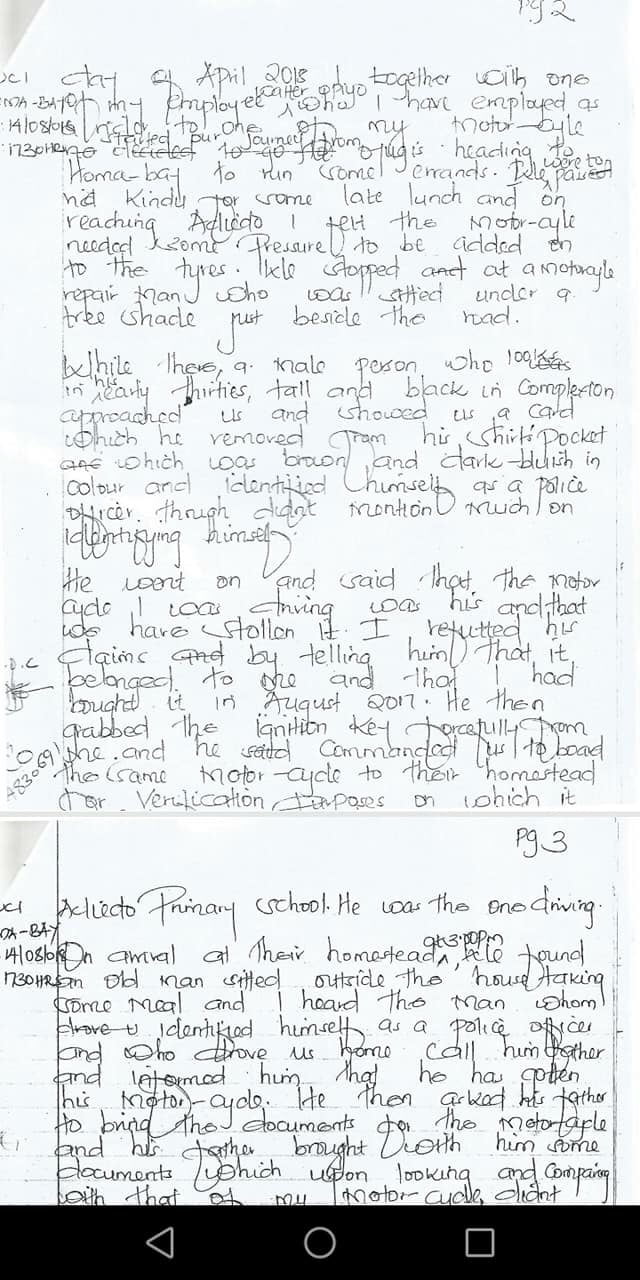 Pg 2
day of April 2018 I together with one
of my employee Walter Opiyo who I have employed as
rider to one of my Motor-cycle
started our journey from Oyugis heading to
Homa-bay to run some errands. We were to
Kindu for some late lunch and on
reaching Adiedo I felt the Motor-cycle
needed some Pressure to be added on
to the tyres. We stopped and at a motorcycle
repair Man who was sitted under a
tree shade just beside the road.
While there, a male person who looks
in his early thirties, tall and black in Complexion
approached us and showed us a card
which he removed from his shirt's pocket
and which was brown and dark-bluish in
colour and identified himself as a police
officer though didn't mention much on
identifying himself.
He went on and said that the Motor
cycle I was driving was his and that
we have stollen it. I refutted his
Claims and by telling him that it
belonged to me and that I had
bought it in August 2017. He then
grabbed the ignition key forcefully from
me. and he said Commanded us to boad
the same Motor-cycle to their homestead
for Verification Purposes on which it
Pg 3
Adiedo Primary school. He was the one driving.
On arrival at their homestead at 3.00pm, We found
an old man sitted outside the house taking
some Meal and I heard the Man whom
drove u identified himself as a police officer
and who drove us home call him father
and informed him that he has gotten
his Motor-cycle. He then asked his father
to bring the documents for the Motor cycle
and his father brought with him some
documents which upon looking and Comparing
with that of my Motor-cycle, didnt
DCI
MA-BAY
14/08/018
1730HRS
D.C
DCI
MA-BAY
14/08/018
1730HRS